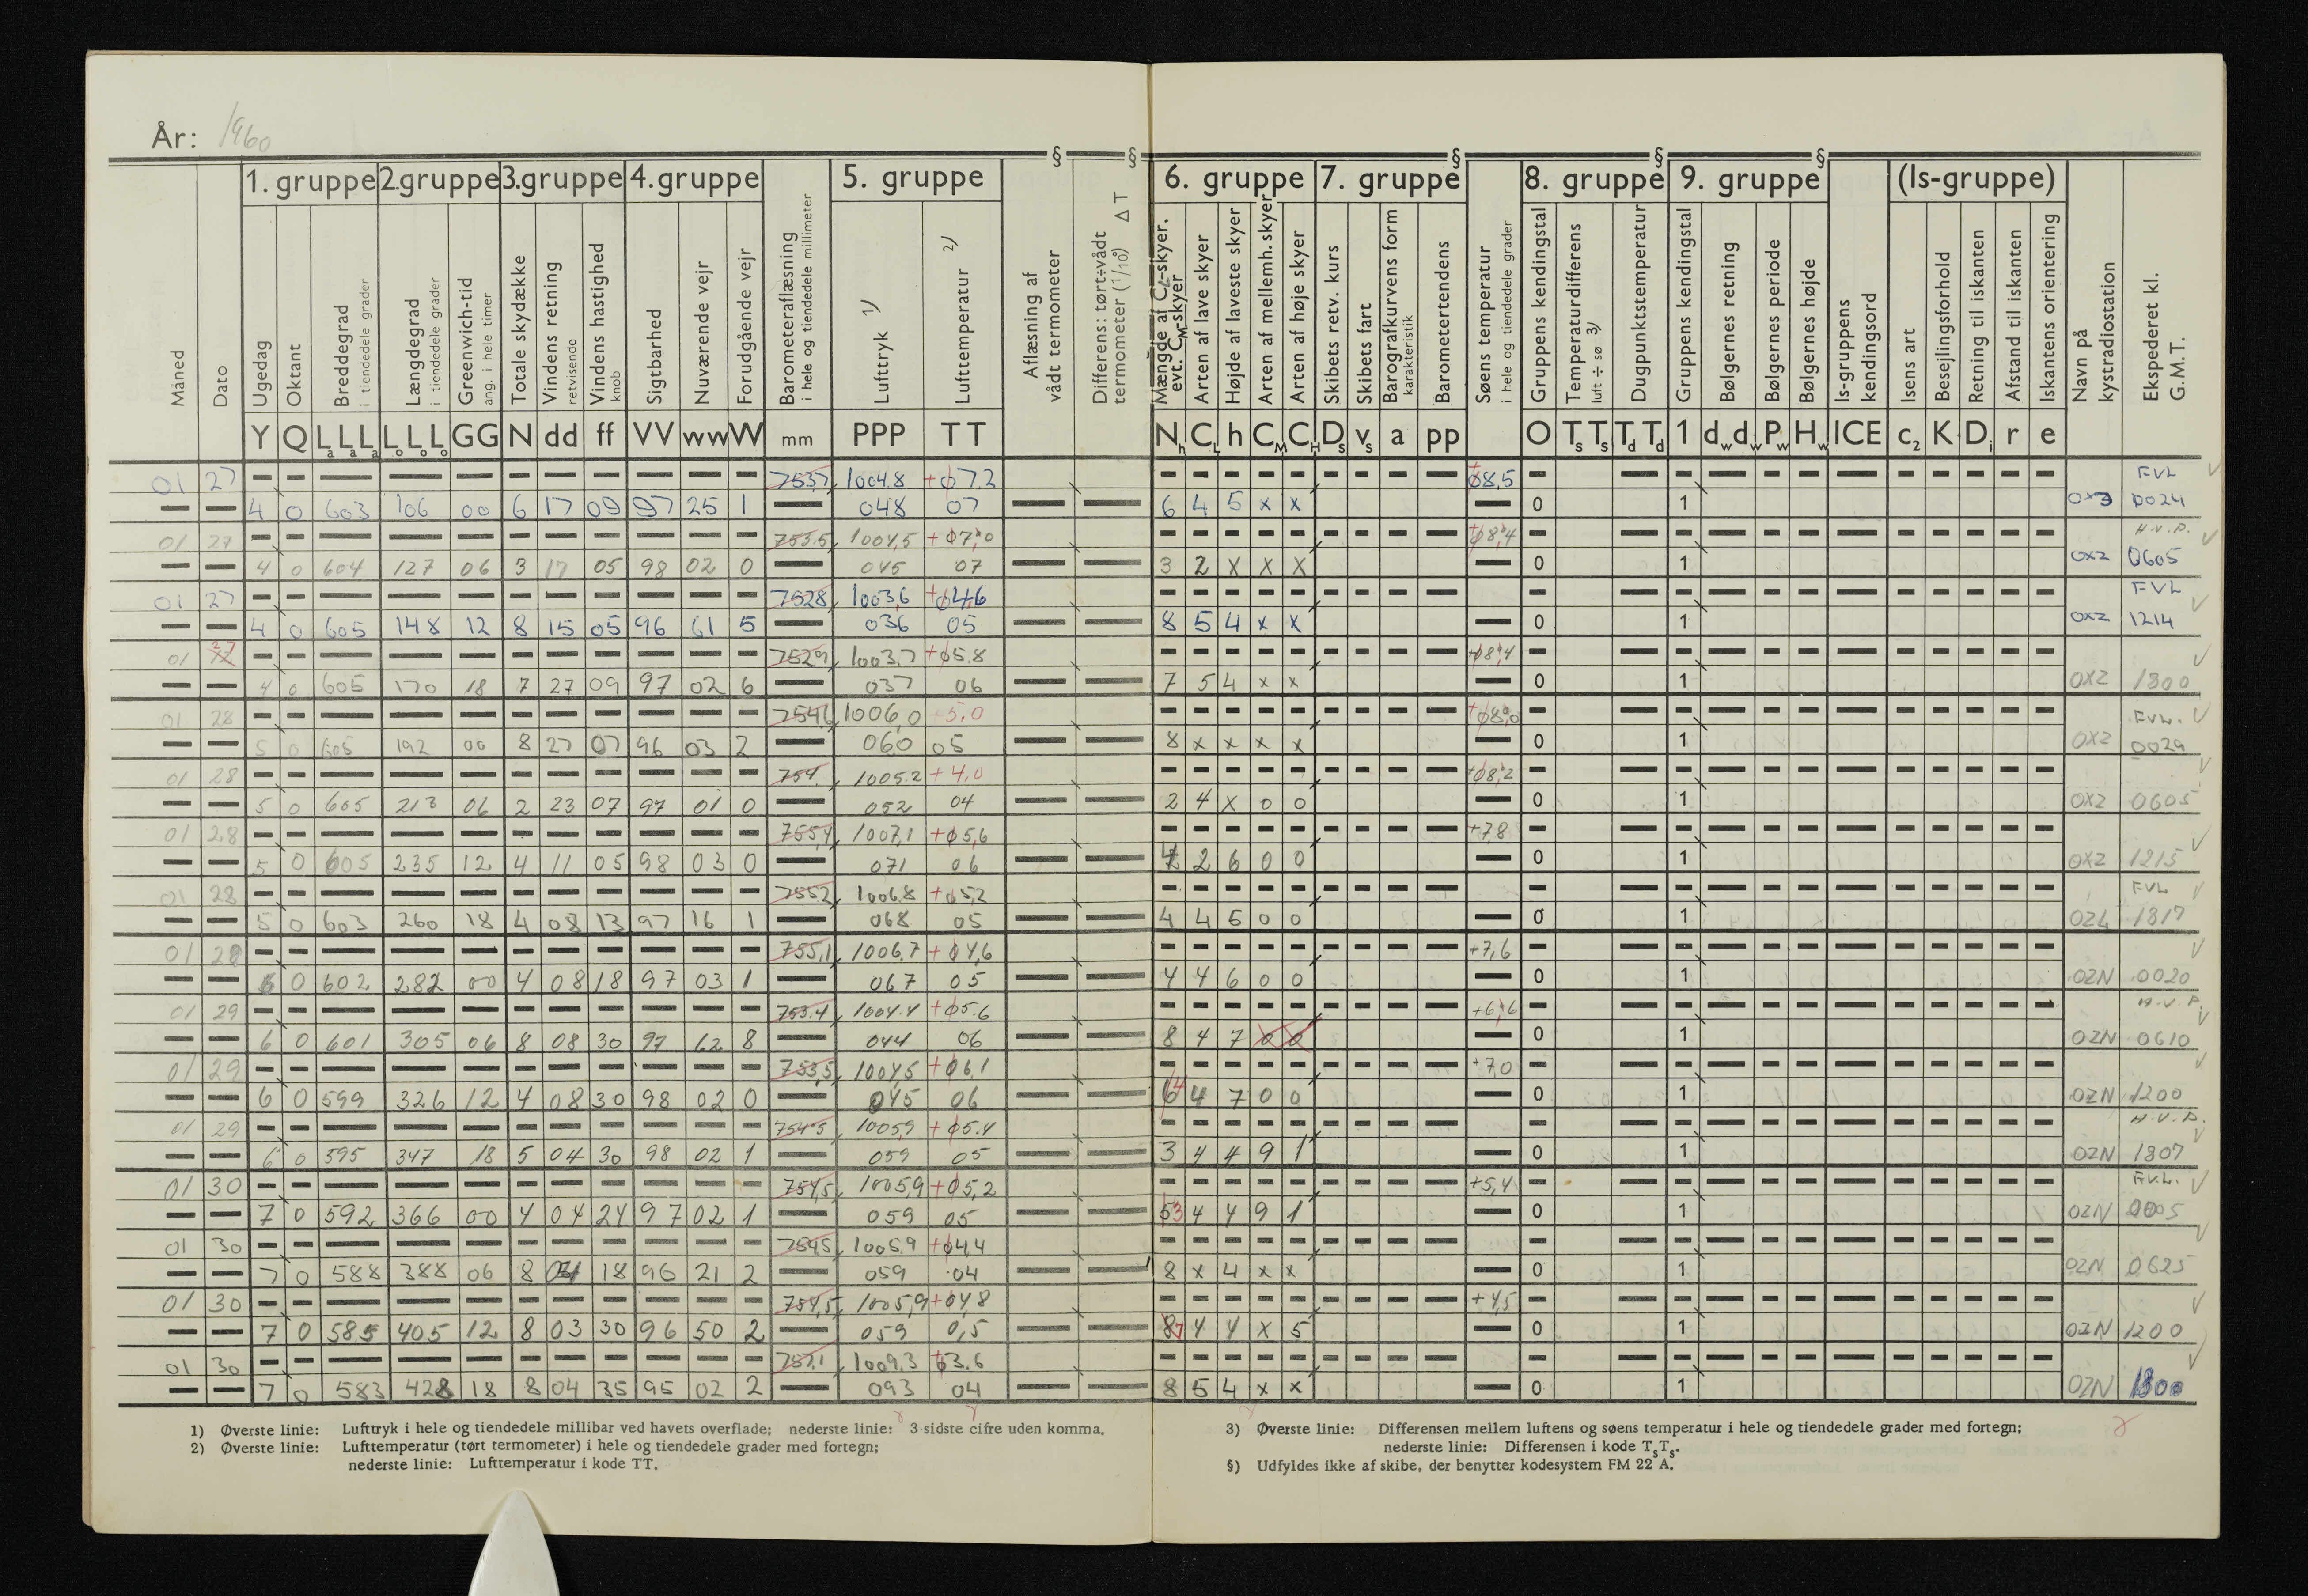 År: 1960
§ § § § §
1. gruppe 2. gruppe 3. gruppe 4. gruppe 5. gruppe 6. gruppe 7. gruppe 8. gruppe 9. gruppe (Is-gruppe)
Måned Dato Ugedag Oktant Breddegrad i tiendedele grader Længdegrad i tiendedele grader Greenwich-tid ang. i hele timer Totale skydække Vindens retning retvisende Vindens hastighed knob Sigtbarhed Nuværende vejr Forudgående vejr Barometeraflæsning i hele og tiendedele millimeter Lufttryk 1) Lufttemperatur 2) Aflæsning af vådt termometer Differens: tørt÷vådt termometer (1/10°) ΔT Mængde af CL-skyer. evt. CM-skyer Arten af lave skyer Højde af laveste skyer Arten af mellemh. skyer Arten af høje skyer Skibets retv. kurs Skibets fart Barografkurvens form karakteristik Barometertendens Søens temperatur i hele og tiendedele grader Gruppens kendingstal Temperaturdifferens luft ÷ sø 3) Dugpunktstemperatur Gruppens kendingstal Bølgernes retning Bølgernes periode Bølgernes højde Is-gruppens kendingsord Isens art Besejlingsforhold Retning til iskanten Afstand til iskanten Iskantens orientering Navn på kystradiostation Ekspederet kl. G.M.T.
Y Q LaLaLa LoLoLo GG N dd ff VV ww W mm PPP TT Nh CL h CM CH Ds vs a pp O TsTs TdTd 1 dwdw Pw Hw ICE c2 K Di r e
01 27 753,7 1004.8 +07.2 +08,5 FVL
4 0 603 106 00 6 17 09 97 25 1 048 07 6 4 5 x x 0 1 0024
01 27 753.5 1004,5 +07,0 +08,4 H.V.P.
4 0 604 127 06 3 17 05 98 02 0 045 07 3 2 x x x 0 1 OXZ 0605
01 27 7528 1003,6 +04,6 FVL
4 0 605 148 12 8 15 05 96 61 5 036 05 8 5 4 x x 0 1 OXZ 1214
01 27 7529 1003.7 +05.8 +08,4
4 0 605 170 18 7 27 09 97 02 6 037 06 7 5 4 x x 0 1 OXZ 1800
01 28 7546 1006,0 +5,0 +08,0 FVL.
5 0 605 192 00 8 27 07 96 03 2 060 05 8 x x x x 0 1 OXZ 0029
01 28 754. 1005.2 +4,0 +08,2
5 0 605 213 06 2 23 07 97 01 0 052 04 2 4 x 0 0 0 1 OXZ 0605
01 28 755,4 1007,1 +05,6 +7,8
5 0 605 235 12 4 11 05 98 03 0 071 06 4 2 6 0 0 0 1 OXZ 1215
01 28 7552 1006.8 +05,2 FVL
5 0 603 260 18 4 08 13 97 16 1 068 05 4 4 6 0 0 0 1 OZL 1817
01 28 755,1 1006.7 +04,6 +7,6
6 0 602 282 00 4 08 18 97 03 1 067 05 4 4 6 0 0 0 1 OZN 0020
01 29 753.4 1004.4 +05.6 +6,6 H.V.P.
6 0 601 305 06 8 08 30 97 62 8 044 06 8 4 7 0 0 0 1 OZN 0610
01 29 753,5 1004,5 +06,1 +7,0
6 0 599 326 12 4 08 30 98 02 0 045 06 4 4 7 0 0 0 1 OZN 1200
01 29 754.5 1005,9 +05.4 H.V.P.
6 0 595 347 18 5 04 30 98 02 1 059 05 3 4 4 9 1 0 1 OZN 1807
01 30 754,5 1005,9 +05,2 +5,4 F.V.L.
7 0 592 366 00 4 04 24 97 02 1 059 05 3 4 4 9 1 0 1 OZN 0005
01 30 7545 1005,9 +04,4
7 0 588 388 06 8 18 96 21 2 059 04 8 x 4 x x 0 1 OZN 0625
01 30 754,5 1005,9 +04,8 +4,5
7 0 585 405 12 8 03 30 96 50 2 059 0,5 7 4 4 x 5 0 1 OZN 1200
01 30 757.1 1009.3 +3.6
7 0 583 428 18 8 04 35 95 02 2 093 04 8 5 4 x x 0 1 OZN 1800
1) Øverste linie: Lufttryk i hele og tiendedele millibar ved havets overflade; nederste linie: 3 sidste cifre uden komma.
2) Øverste linie: Lufttemperatur (tørt termometer) i hele og tiendedele grader med fortegn;
nederste linie: Lufttemperatur i kode TT.
3) Øverste linie: Differensen mellem luftens og søens temperatur i hele og tiendedele grader med fortegn;
nederste linie: Differensen i kode TsTs.
§) Udfyldes ikke af skibe, der benytter kodesystem FM 22 A.